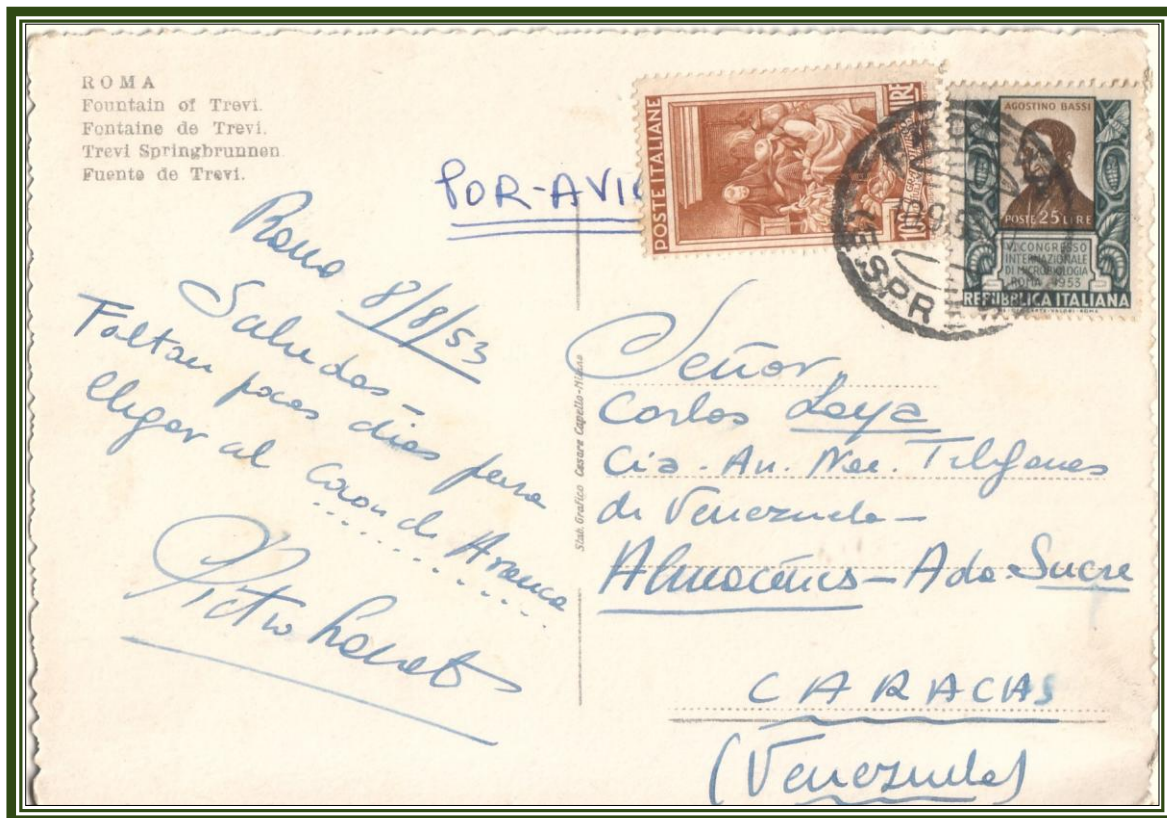 ROMA
Fountain of Trevi.
Fontaine de Trevi.
Trevi Springbrunnen
Fuente de Trevi.
POR-AVIO
POSTE ITALIANE
100 LIRE
AGOSTINO BASSI
POSTE 25 LIRE
VI CONGRESSO
INTERNAZIONALE
DI MICROBIOLOGIA
ROMA 1953
REPUBBLICA ITALIANA
ESPR
Roma
8/8/53
Saludos -
Faltan pocos dias para
llegar al de
Pietro
Stab. Grafico Cesare Capello - Milano
Señor
Carlos Loya
Cia. An. Nac. Telefonos
de Venezuela -
Almacenes - Ada. Sucre
CARACAS
(Venezuela)